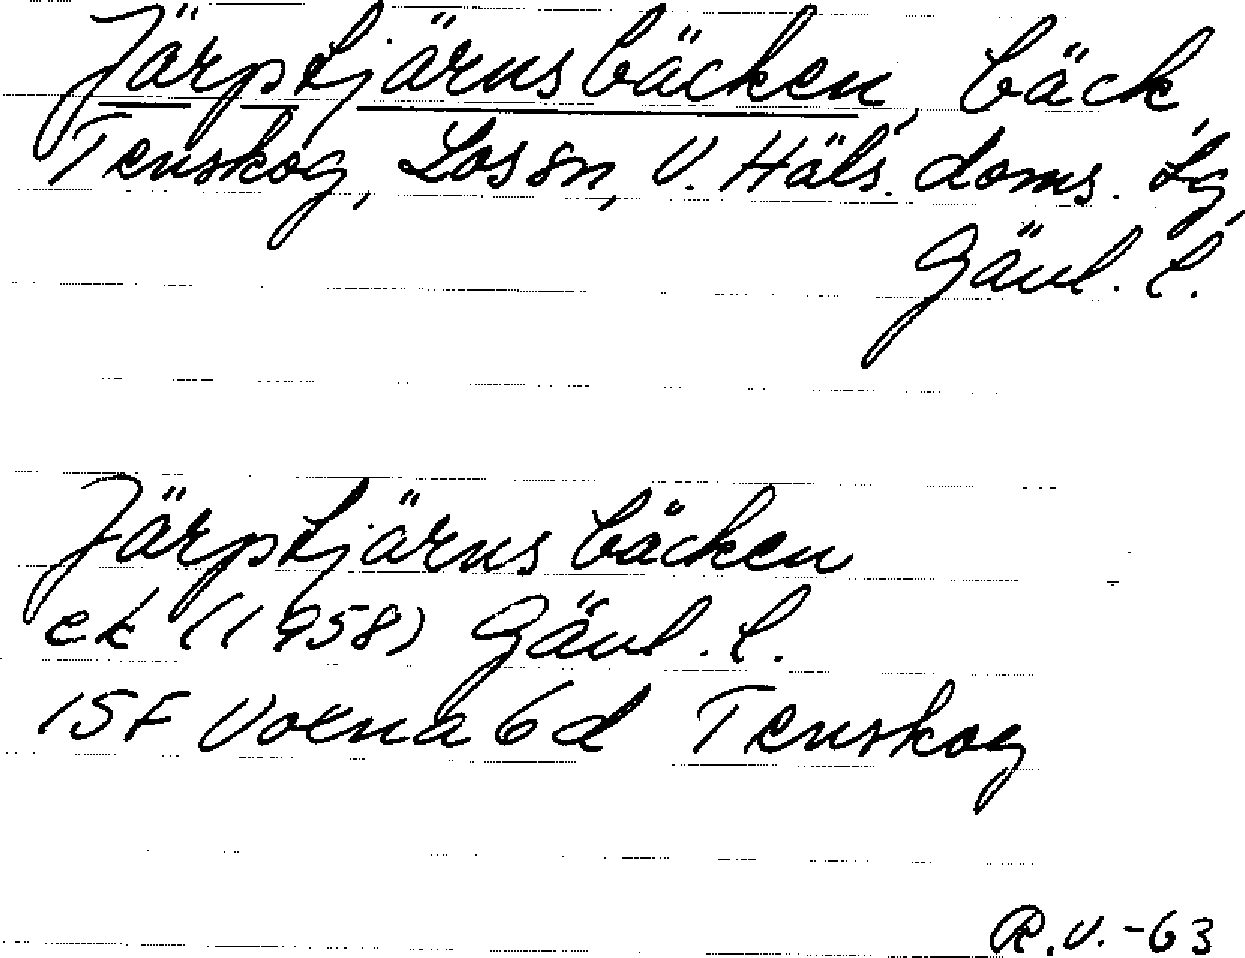 Järptjärnsbäcken, bäck,
Tenskog, Los sn, V. Häls. doms. Lg,
Gävl. l.
Järptjärnsbäcken
ek (1958) Gävl. l.
15F Voxna 6d Tenskog
R.V.-63